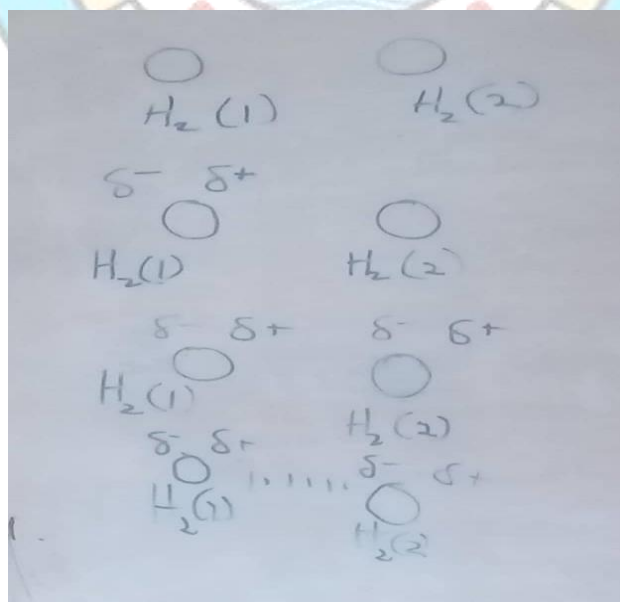 H₂ (1) H₂ (2)
δ- δ+
H₂(1) H₂ (2)
δ- δ+ δ- δ+
H₂(1) H₂ (2)
δ- δ+ ...... δ- δ+
H₂(1) H₂(2)